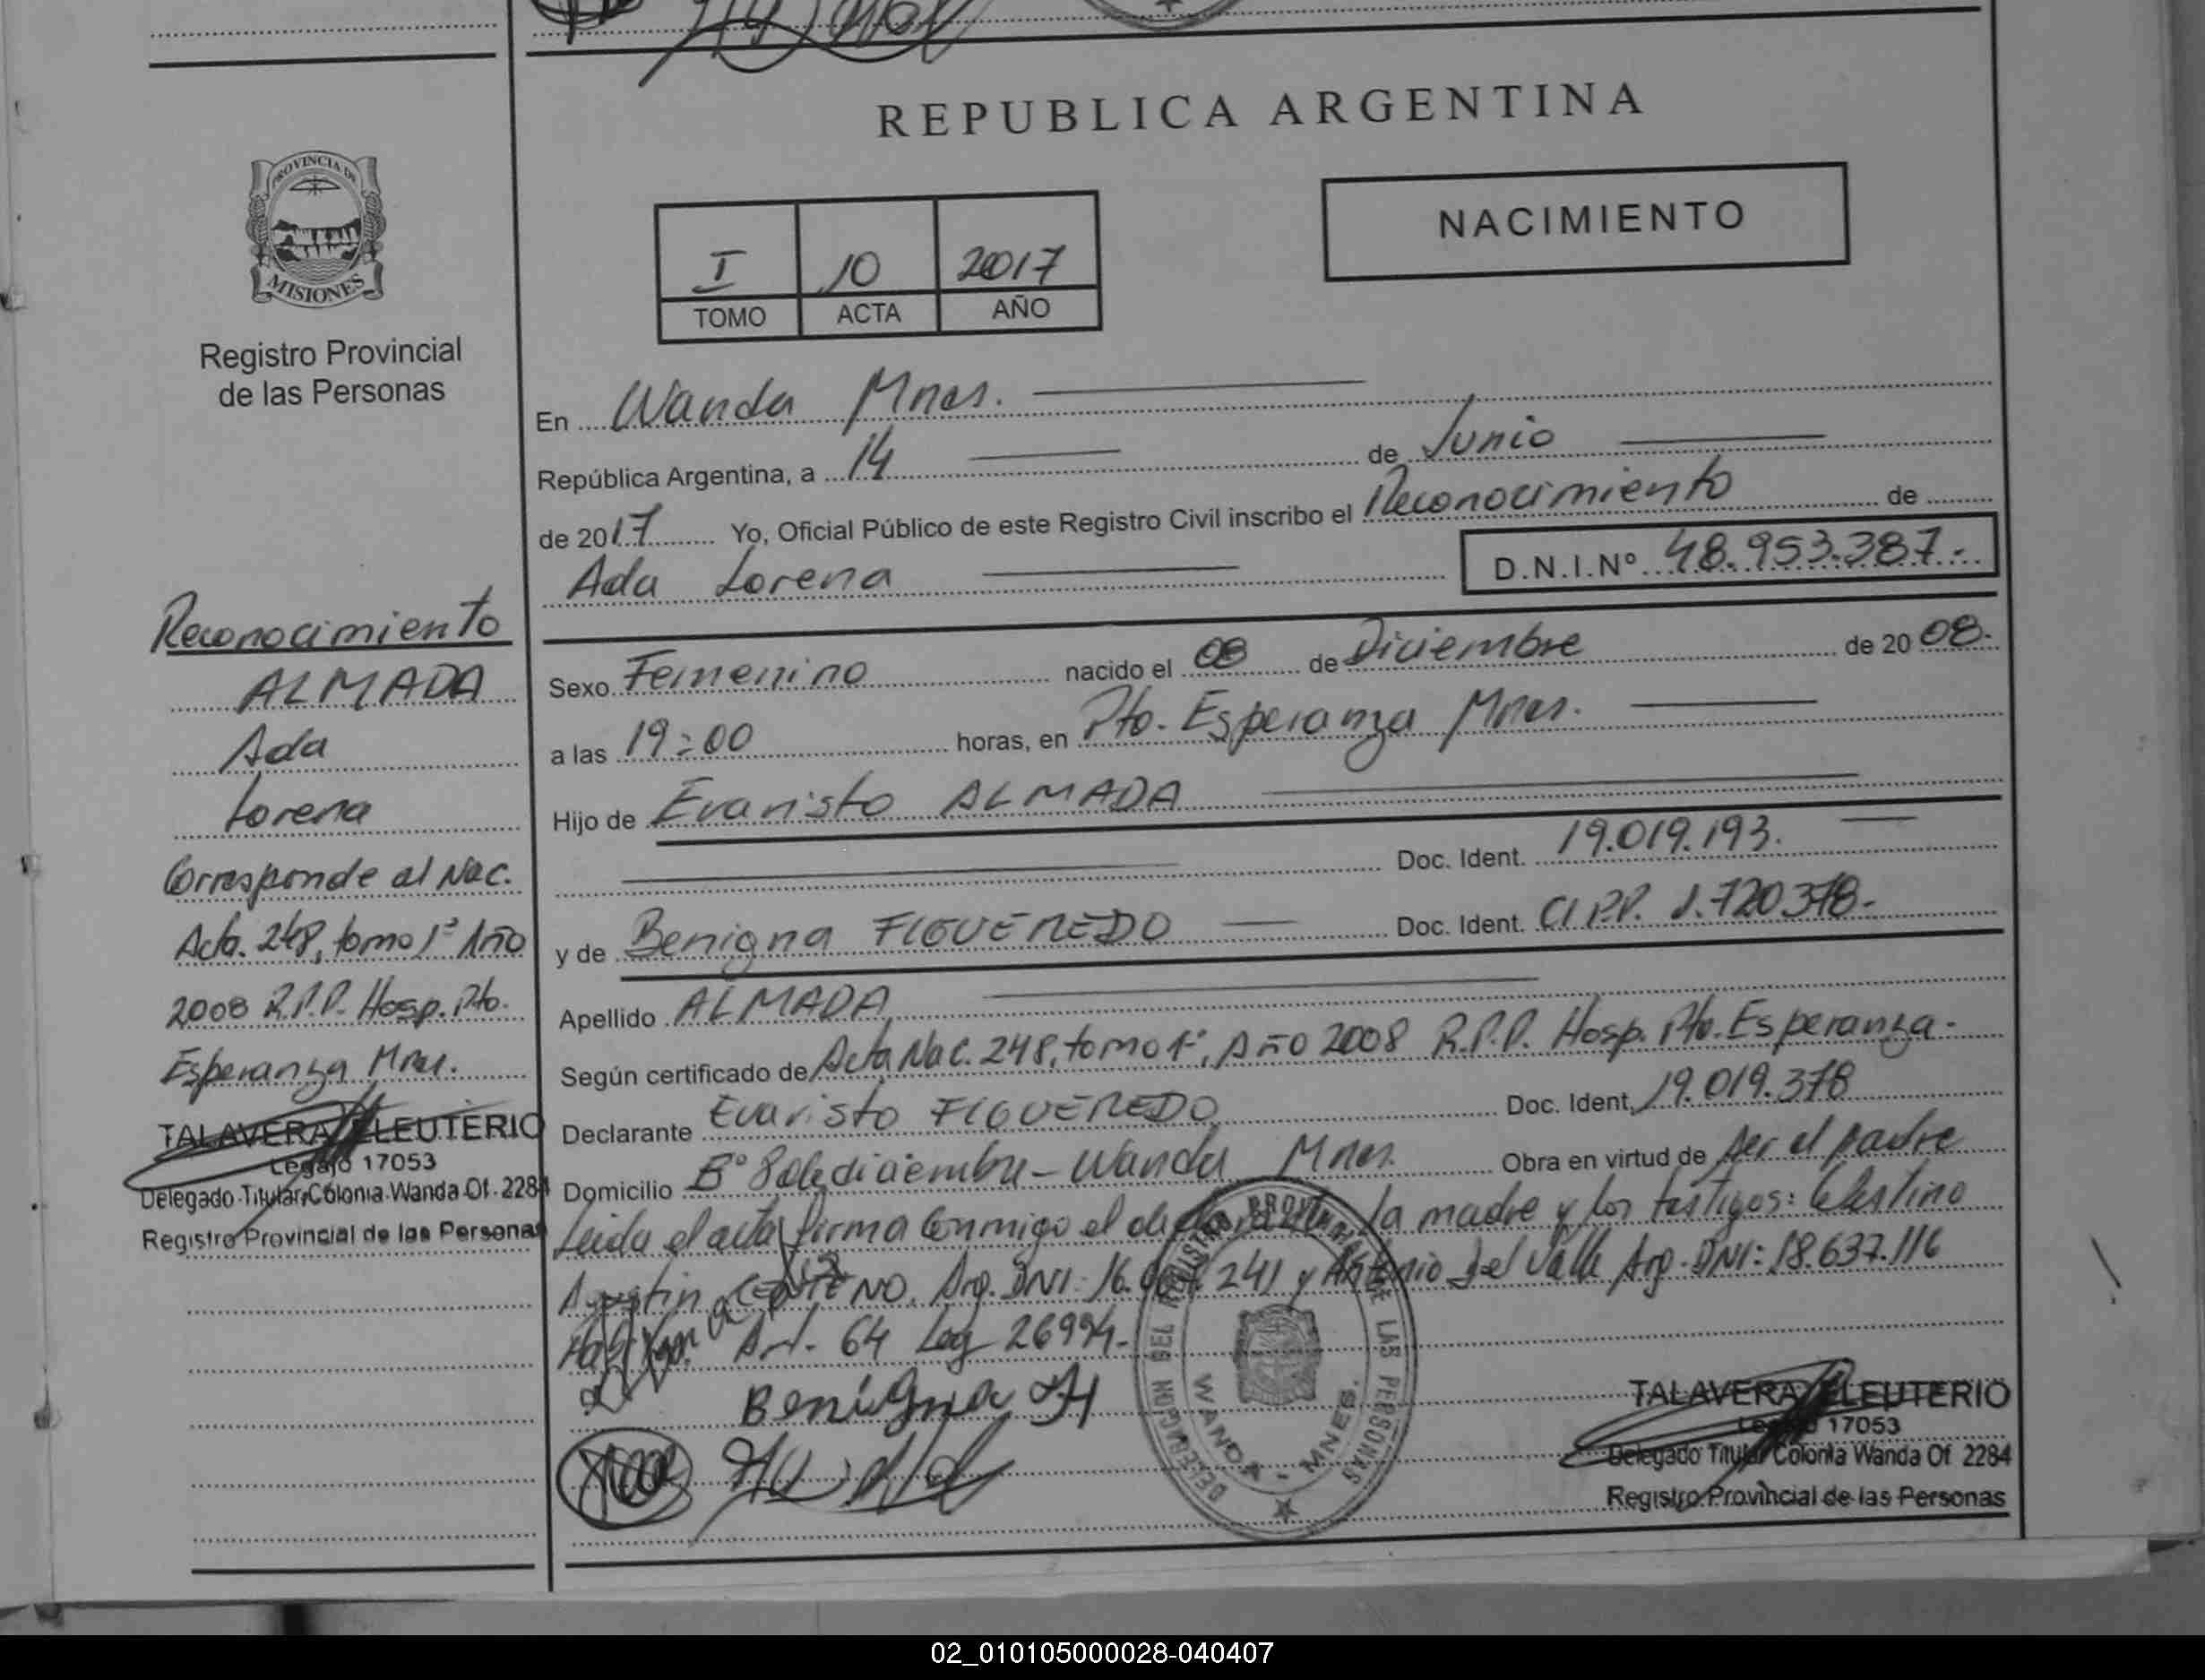 REPUBLICA ARGENTINA
PROVINCIA DE
MISIONES
Registro Provincial
de las Personas
NACIMIENTO
I 10 2017
TOMO ACTA AÑO
En Wanda Mnes.
República Argentina, a 14 de Junio
de 2017 Yo, Oficial Público de este Registro Civil inscribo el Reconocimiento de
Ada Lorena D.N.I.Nº 48.953.387.-
Sexo Femenino nacido el 08 de Diciembre de 2008.
a las 19:00 horas, en Pto. Esperanza Mnes.
Hijo de Evaristo ALMADA
Doc. Ident. 19.019.193.
y de Benigna FIGUEREDO Doc. Ident. CI P.P. 1.720378.-
Apellido ALMADA
Según certificado de Acta Nac. 248, tomo 1º, Año 2008 R.P.P. Hosp. Pto. Esperanza.
Declarante Evaristo FIGUEREDO Doc. Ident. 19.019.378
Domicilio Bº 8 de diciembre - Wanda Mnes. Obra en virtud de ser el padre
Leida el acta firma conmigo el la madre y los testigos: Celestino
Agustin CENTENO, Arg. DNI: 16. 241 y Antonio del Valle Arg. DNI: 18.637.116
Art. 64 Ley 26994.-
Benigna
DELEGACION DEL REGISTRO PROVINCIAL DE LAS PERSONAS
WANDA - MNES.
TALAVERA ELEUTERIO
Legajo 17053
Delegado Titular Colonia Wanda Of. 2284
Registro Provincial de las Personas
Reconocimiento
ALMADA
Ada
Lorena
Corresponde al Nac.
Acta. 248, tomo 1º Año
2008 R.P.P. Hosp. Pto.
Esperanza Mnes.
TALAVERA ELEUTERIO
Legajo 17053
Delegado Titular Colonia Wanda Of. 2284
Registro Provincial de las Personas
02_010105000028-040407